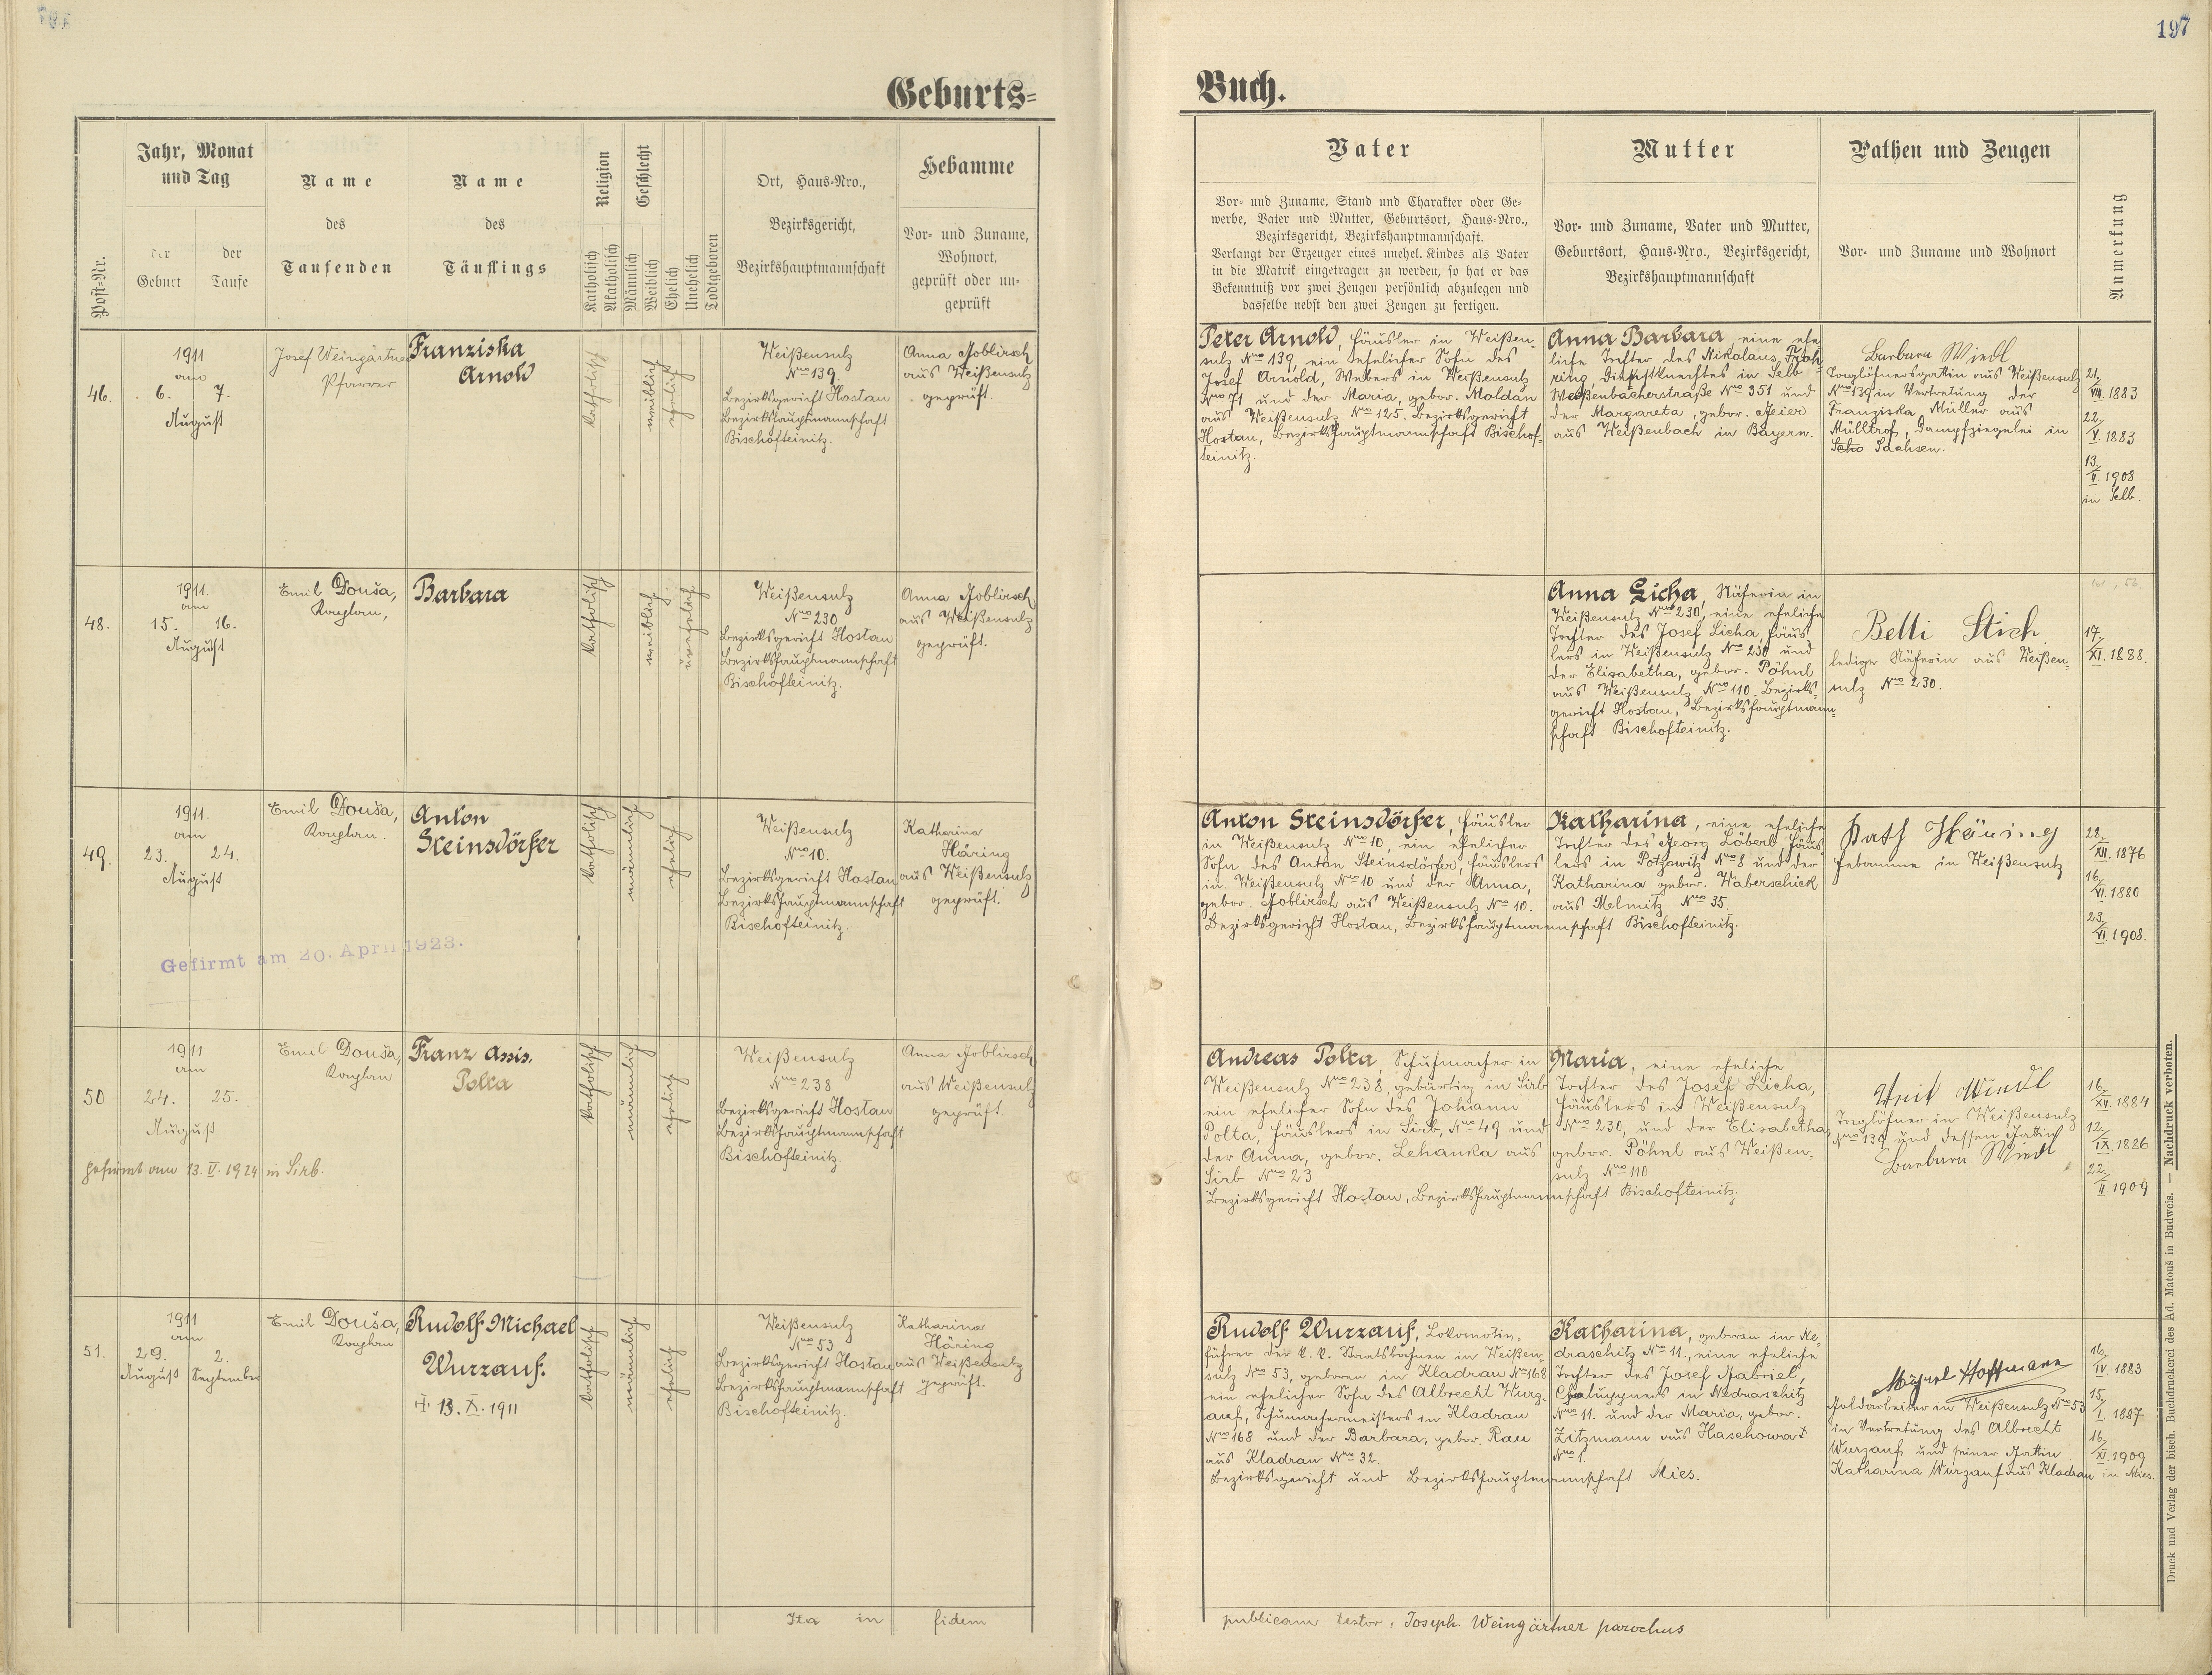 197
Geburts-
Buch.
Post-Nr.
Jahr, Monat
und Tag
der
Geburt
der
Taufe
Name
des
Taufenden
Name
des
Täuflings
Religion
Katholisch
Akatholisch
Geschlecht
Männlich
Weiblich
Ehelich
Unehelich
Todtgeboren
Ort, Haus-Nro.,
Bezirksgericht,
Bezirkshauptmannschaft
Hebamme
Vor- und Zuname,
Wohnort,
geprüft oder un-
geprüft
Vater
Vor- und Zuname, Stand und Charakter oder Ge-
werbe, Vater und Mutter, Geburtsort, Haus-Nro.,
Bezirksgericht, Bezirkshauptmannschaft.
Verlangt der Erzeuger eines unehel. Kindes als Vater
in die Matrik eingetragen zu werden, so hat er das
Bekenntniß vor zwei Zeugen persönlich abzulegen und
dasselbe nebst den zwei Zeugen zu fertigen.
Mutter
Vor- und Zuname, Vater und Mutter,
Geburtsort, Haus-Nro., Bezirksgericht,
Bezirkshauptmannschaft
Pathen und Zeugen
Vor- und Zuname und Wohnort
Anmerkung
46.
1911
am
6. 7.
August
Josef Weingärtner
Pfarrer
Franziska
Arnold
katholisch
weiblich
ehelich
Weißensulz
Nro 139.
Bezirksgericht Hostau
Bezirkshauptmannschaft
Bischofteinitz.
Anna Joblirsch
aus Weißensulz
geprüft.
Peter Arnold, Häusler in Weißen-
sulz Nro 139, ein ehelicher Sohn des
Josef Arnold, Webers in Weißensulz
Nro 71 und der Maria, gebor. Moldan
aus Weißensulz Nro 125. Bezirksgericht
Hostau, Bezirkshauptmannschaft Bischof-
teinitz.
Anna Barbara, eine ehe
liche Tochter des Nikolaus
ring, Dienstknechtes in Selb
Weißenbacherstraße Nro 351 und
der Margareta, gebor. Meier
aus Weißenbach in Bayern.
Barbara Wiedl
Taglöhnersgattin aus Weißensulz
Nro 139 in Vertretung der
Franziska Müller aus
Mülltrof, Dampfziegelei in
Scho Sachsen.
21./VIII. 1883
22./V. 1883
13./V. 1908
in Selb.
48.
1911.
am
15. 16.
August
Emil Douša,
Kaplan,
Barbara
katholisch
weiblich
unehelich
Weißensulz
Nro 230
Bezirksgericht Hostau
Bezirkshauptmannschaft
Bischofteinitz.
Anna Joblirsch
aus Weißensulz
geprüft.
Anna Licha, Näherin in
Weißensulz Nro 230, eine eheliche
Tochter des Josef Licha, Häus
lers in Weißensulz Nro 230 und
der Elisabetha, gebor. Pöhnl
aus Weißensulz Nro 110. Bezirks-
gericht Hostau, Bezirkshauptmann-
schaft Bischofteinitz.
Betti Stich
ledige Näherin aus Weißen-
sulz Nro 230.
17./XI. 1888.
49.
1911.
am
23. 24.
August
Emil Douša,
Kaplan.
Anton
Steinsdörfer
katholisch
männlich
ehelich
Weißensulz
Nro 10.
Bezirksgericht Hostau
Bezirkshauptmannschaft
Bischofteinitz.
Katharina
Häring
aus Weißensulz
geprüft.
Gefirmt am 20. April 1923.
Anton Steinsdörfer, Häusler
in Weißensulz Nro 10, ein ehelicher
Sohn des Anton Steinsdörfer, Häuslers
in Weißensulz Nro 10 und der Anna,
gebor. Joblirsch aus Weißensulz Nro 10.
Bezirksgericht Hostau, Bezirkshauptmannschaft Bischofteinitz.
Katharina, eine eheliche
Tochter des Georg Löberl, Häus
lers in Potzowitz Nro 8 und der
Katharina gebor. Waberschick
aus Melmitz Nro 35.
Kath Häring
Hebamme in Weißensulz
28./XII. 1876
16./VI. 1880
23./VI. 1908.
50
1911
am
24. 25.
August
Emil Douša,
Kaplan
Franz Assis.
Polta
katholisch
männlich
ehelich
Weißensulz
Nro 238
Bezirksgericht Hostau
Bezirkshauptmannschaft
Bischofteinitz.
Anna Joblirsch
aus Weißensulz
geprüft.
gefirmt am 13. V. 1924 in Sirb.
Andreas Polta, Schuhmacher in
Weißensulz Nro 238, gebürtig in Sirb
ein ehelicher Sohn des Johann
Polta, Häuslers in Sirb, Nro 49 und
der Anna, gebor. Lehanka aus
Sirb Nro 23
Bezirksgericht Hostau, Bezirkshauptmannschaft Bischofteinitz.
Maria, eine eheliche
Tochter des Josef Licha,
Häuslers in Weißensulz
Nro 230, und der Elisabetha,
gebor. Pöhnl aus Weißen-
sulz Nro 110
Wiedl
Taglöhner in Weißensulz
Nro 139 und dessen Gattin
Barbara Wiedl
16./XII. 1884
12./IX. 1886
22./II. 1909
51.
1911
am
29. 2.
August September
Emil Douša,
Kaplan
Rudolf Michael
Wurzauf.
13. X. 1911
katholisch
männlich
ehelich
Weißensulz
Nro 53
Bezirksgericht Hostau
Bezirkshauptmannschaft
Bischofteinitz.
Katharina
Häring
aus Weißensulz
geprüft.
Rudolf Wurzauf, Lokomotiv-
führer der k. k. Staatsbahnen in Weißen-
sulz Nro 53, geboren in Kladrau Nro 168
ein ehelicher Sohn des Albrecht Wurz-
auf, Schuhmachermeisters in Kladrau
Nro 168 und der Barbara, gebor. Rau
aus Kladrau Nro 32.
Bezirksgericht und Bezirkshauptmannschaft Mies.
Katharina, geboren in Ne-
draschitz Nro 11., eine eheliche
Tochter des Josef Gabriel,
Chaluppners in Nedraschitz
Nro 11. und der Maria, gebor.
Zitzmann aus Haschowa
Nro 1.
Hoffmann
Goldarbeiter in Weißensulz Nro 53
in Vertretung des Albrecht
Wurzauf und seiner Gattin
Katharina Wurzauf aus Kladrau
16./IV. 1883
15./I. 1887
16./XI. 1909
in Mies.
Ita in fidem
publicam testor: Joseph Weingärtner parochus
Druck und Verlag der bisch. Buchdruckerei des Ad. Matouš in Budweis. — Nachdruck verboten.